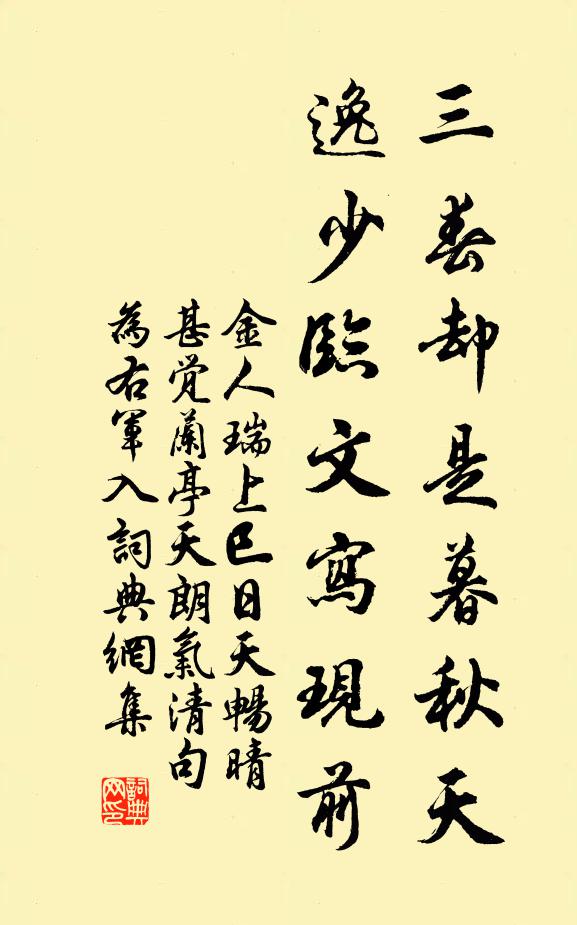 三春却是暮秋天
逸少臨文寫現前
金人瑞上巳日天暢晴
甚覚蘭亭天朗氣清句
為右軍入詞典網集
詞典網印